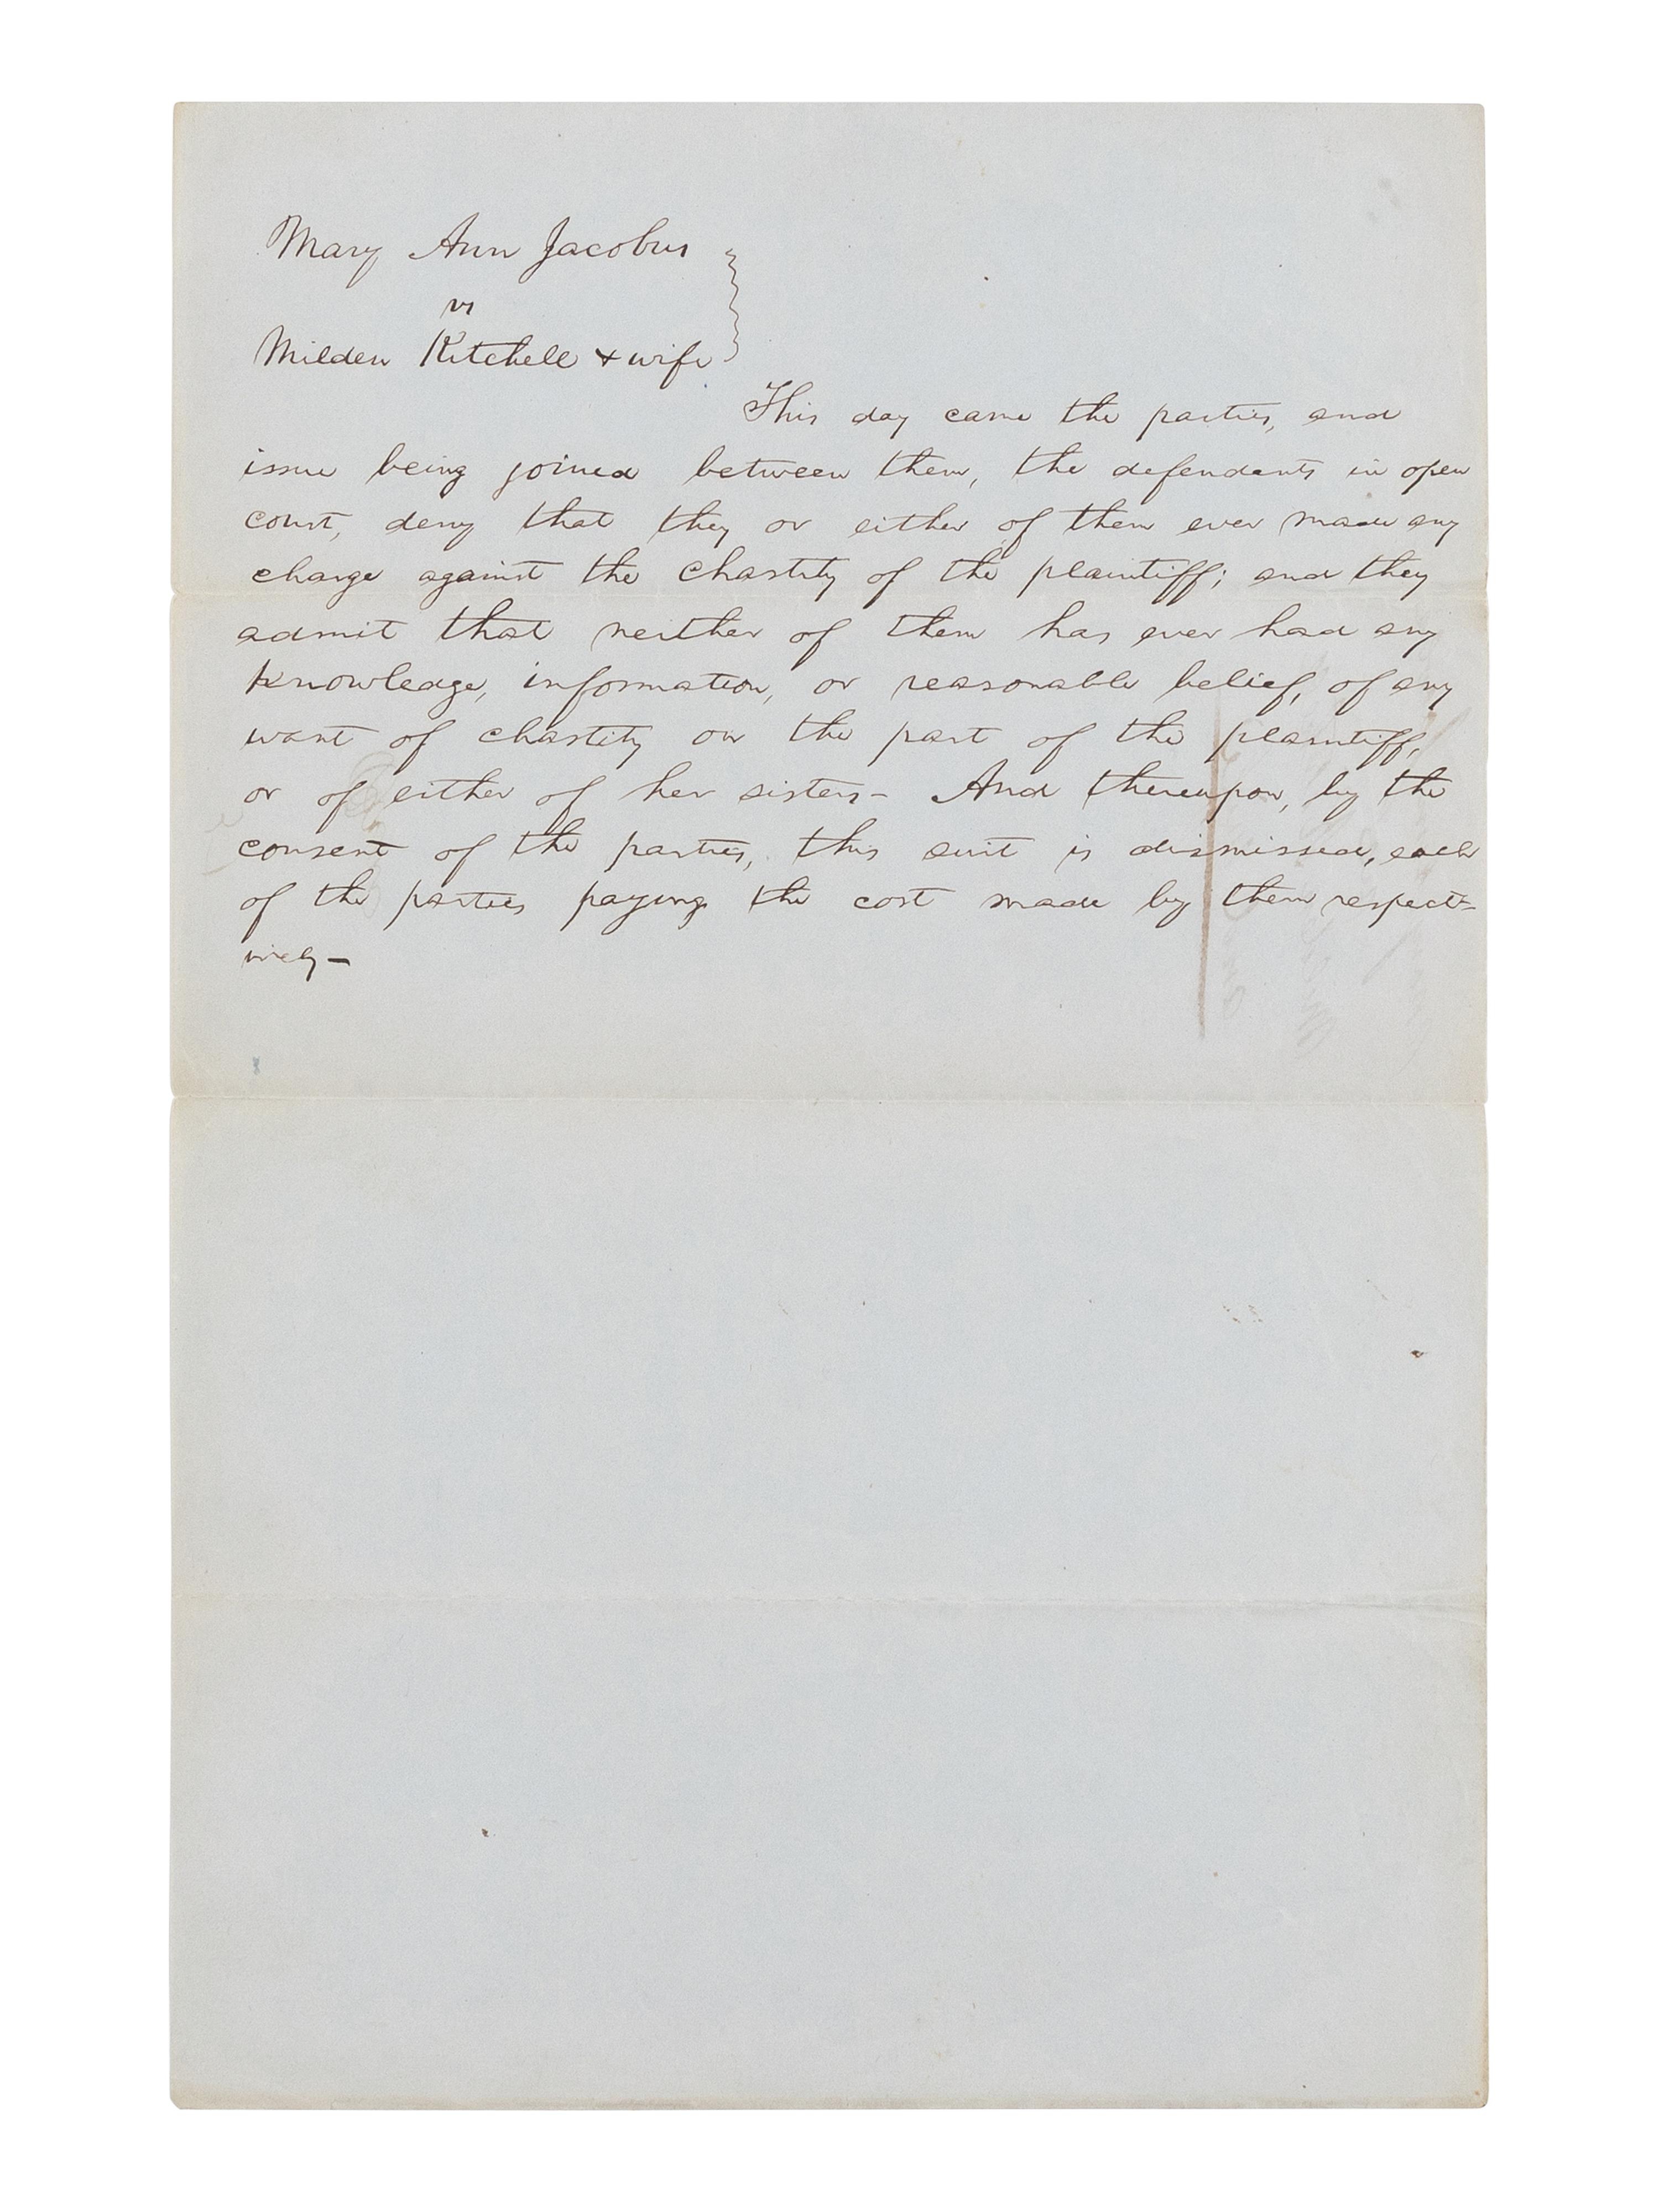 Mary Ann Jacobus
vs
Milden Kitchell & wife
This day came the parties, and
issue being joined between them, the defendants in open
court, deny that they or either of them ever made any
charge against the chastity of the plaintiff; and they
admit that neither of them has ever had any
knowledge, information, or reasonable belief, of any
want of chastity on the part of the plaintiff,
or of either of her sisters— And thereupon, by the
consent of the parties, this suit is dismissed, each
of the parties paying the cost made by them respect=
ively—